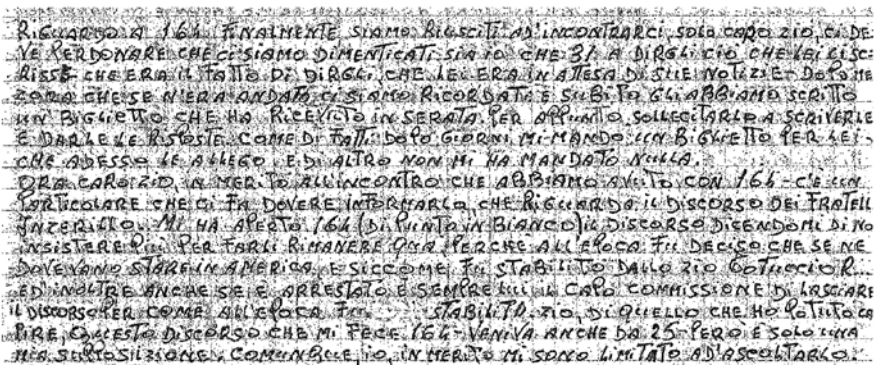 RIGUARDO A 164 FINALMENTE SIAMO RIUSCITI AD'INCONTRARCI, SOLO CARO ZIO, CI DE-
VE PERDONARE CHE CI SIAMO DIMENTICATI SIA IO CHE 31 A DIRGLI CIÒ CHE LEI CI SC-
RISSE CHE ERA IL FATTO DI DIRGLI CHE LEI ERA IN ATTESA DI SUE NOTIZIE - DOPO ME
ZORA CHE SE N'ERA ANDATO CI SIAMO RICORDATI E SUBITO GLI ABBIAMO SCRITTO
UN'BIGLIETTO CHE HA RICEVUTO IN SERATA PER APPUNTO SOLLECITARLO A SCRIVERLE
E DARLE LE RISPOSTE. COME DI FATTI DOPO GIORNI, MI MANDO UN BIGLIETTO PER LEI -
CHE ADESSO LE ALLEGO. E DI ALTRO NON MI HA MANDATO NULLA.
ORA CARO ZIO, IN MERITO ALL'INCONTRO CHE ABBIAMO AVUTO CON 164 - C'E UN
PARTICOLARE CHE CI FA DOVERE INFORMARLA CHE RIGUARDA IL DISCORSO DEI FRATELL
INZERILLO. MI HA APERTO 164 (DI PUNTO IN BIANCO) IL DISCORSO DICENDOMI DI NO
INSISTERE PIÙ PER FARLI RIMANERE QUA, PERCHE ALL'EPOCA FU DECISO CHE SE NE
DOVEVANO STARE IN AMERICA, E SICCOME FU STABILITO DALLO ZIO TOTUCCIO R...
ED'INOLTRE ANCHE SE E ARRESTATO E SEMPRE LUI IL CAPO COMMISSIONE DI LASCIARE
IL DISCORSO PER COME ALL'EPOCA FU STABILITO. ZIO, DI QUELLO CHE HO POTUTO CA
PIRE, QUESTO DISCORSO CHE MI FECE 164 - VENIVA ANCHE DA 25 - PERO È SOLO UNA
MIA SUPPOSIZIONE. COMUNQUE IO, IN MERITO MI SONO LIMITATO AD'ASCOLTARLO.